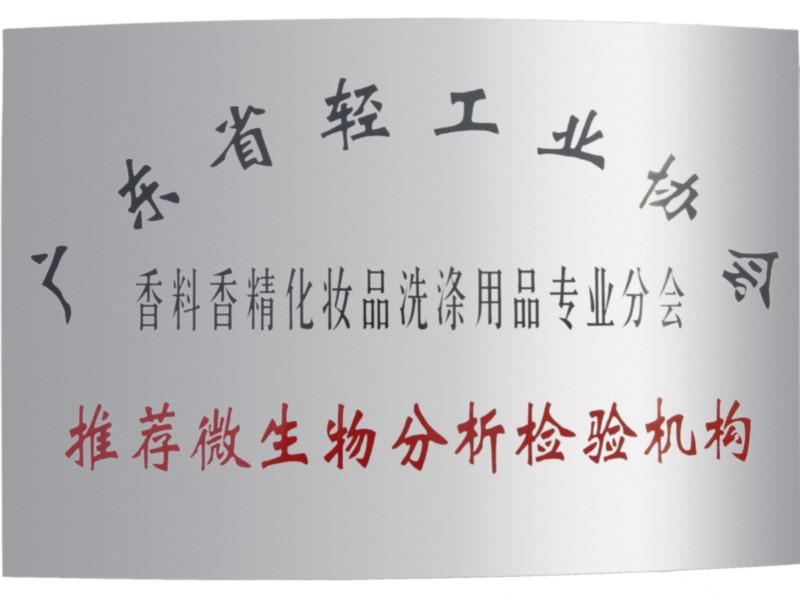 广东省轻工业协会
香料香精化妆品洗涤用品专业分会
推荐微生物分析检验机构